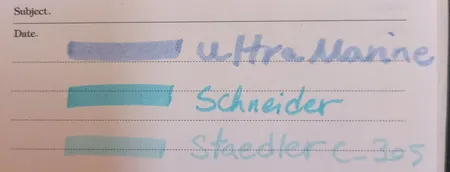 Subject.
Date.
ultra Marine
Schneider
Staedler C-305